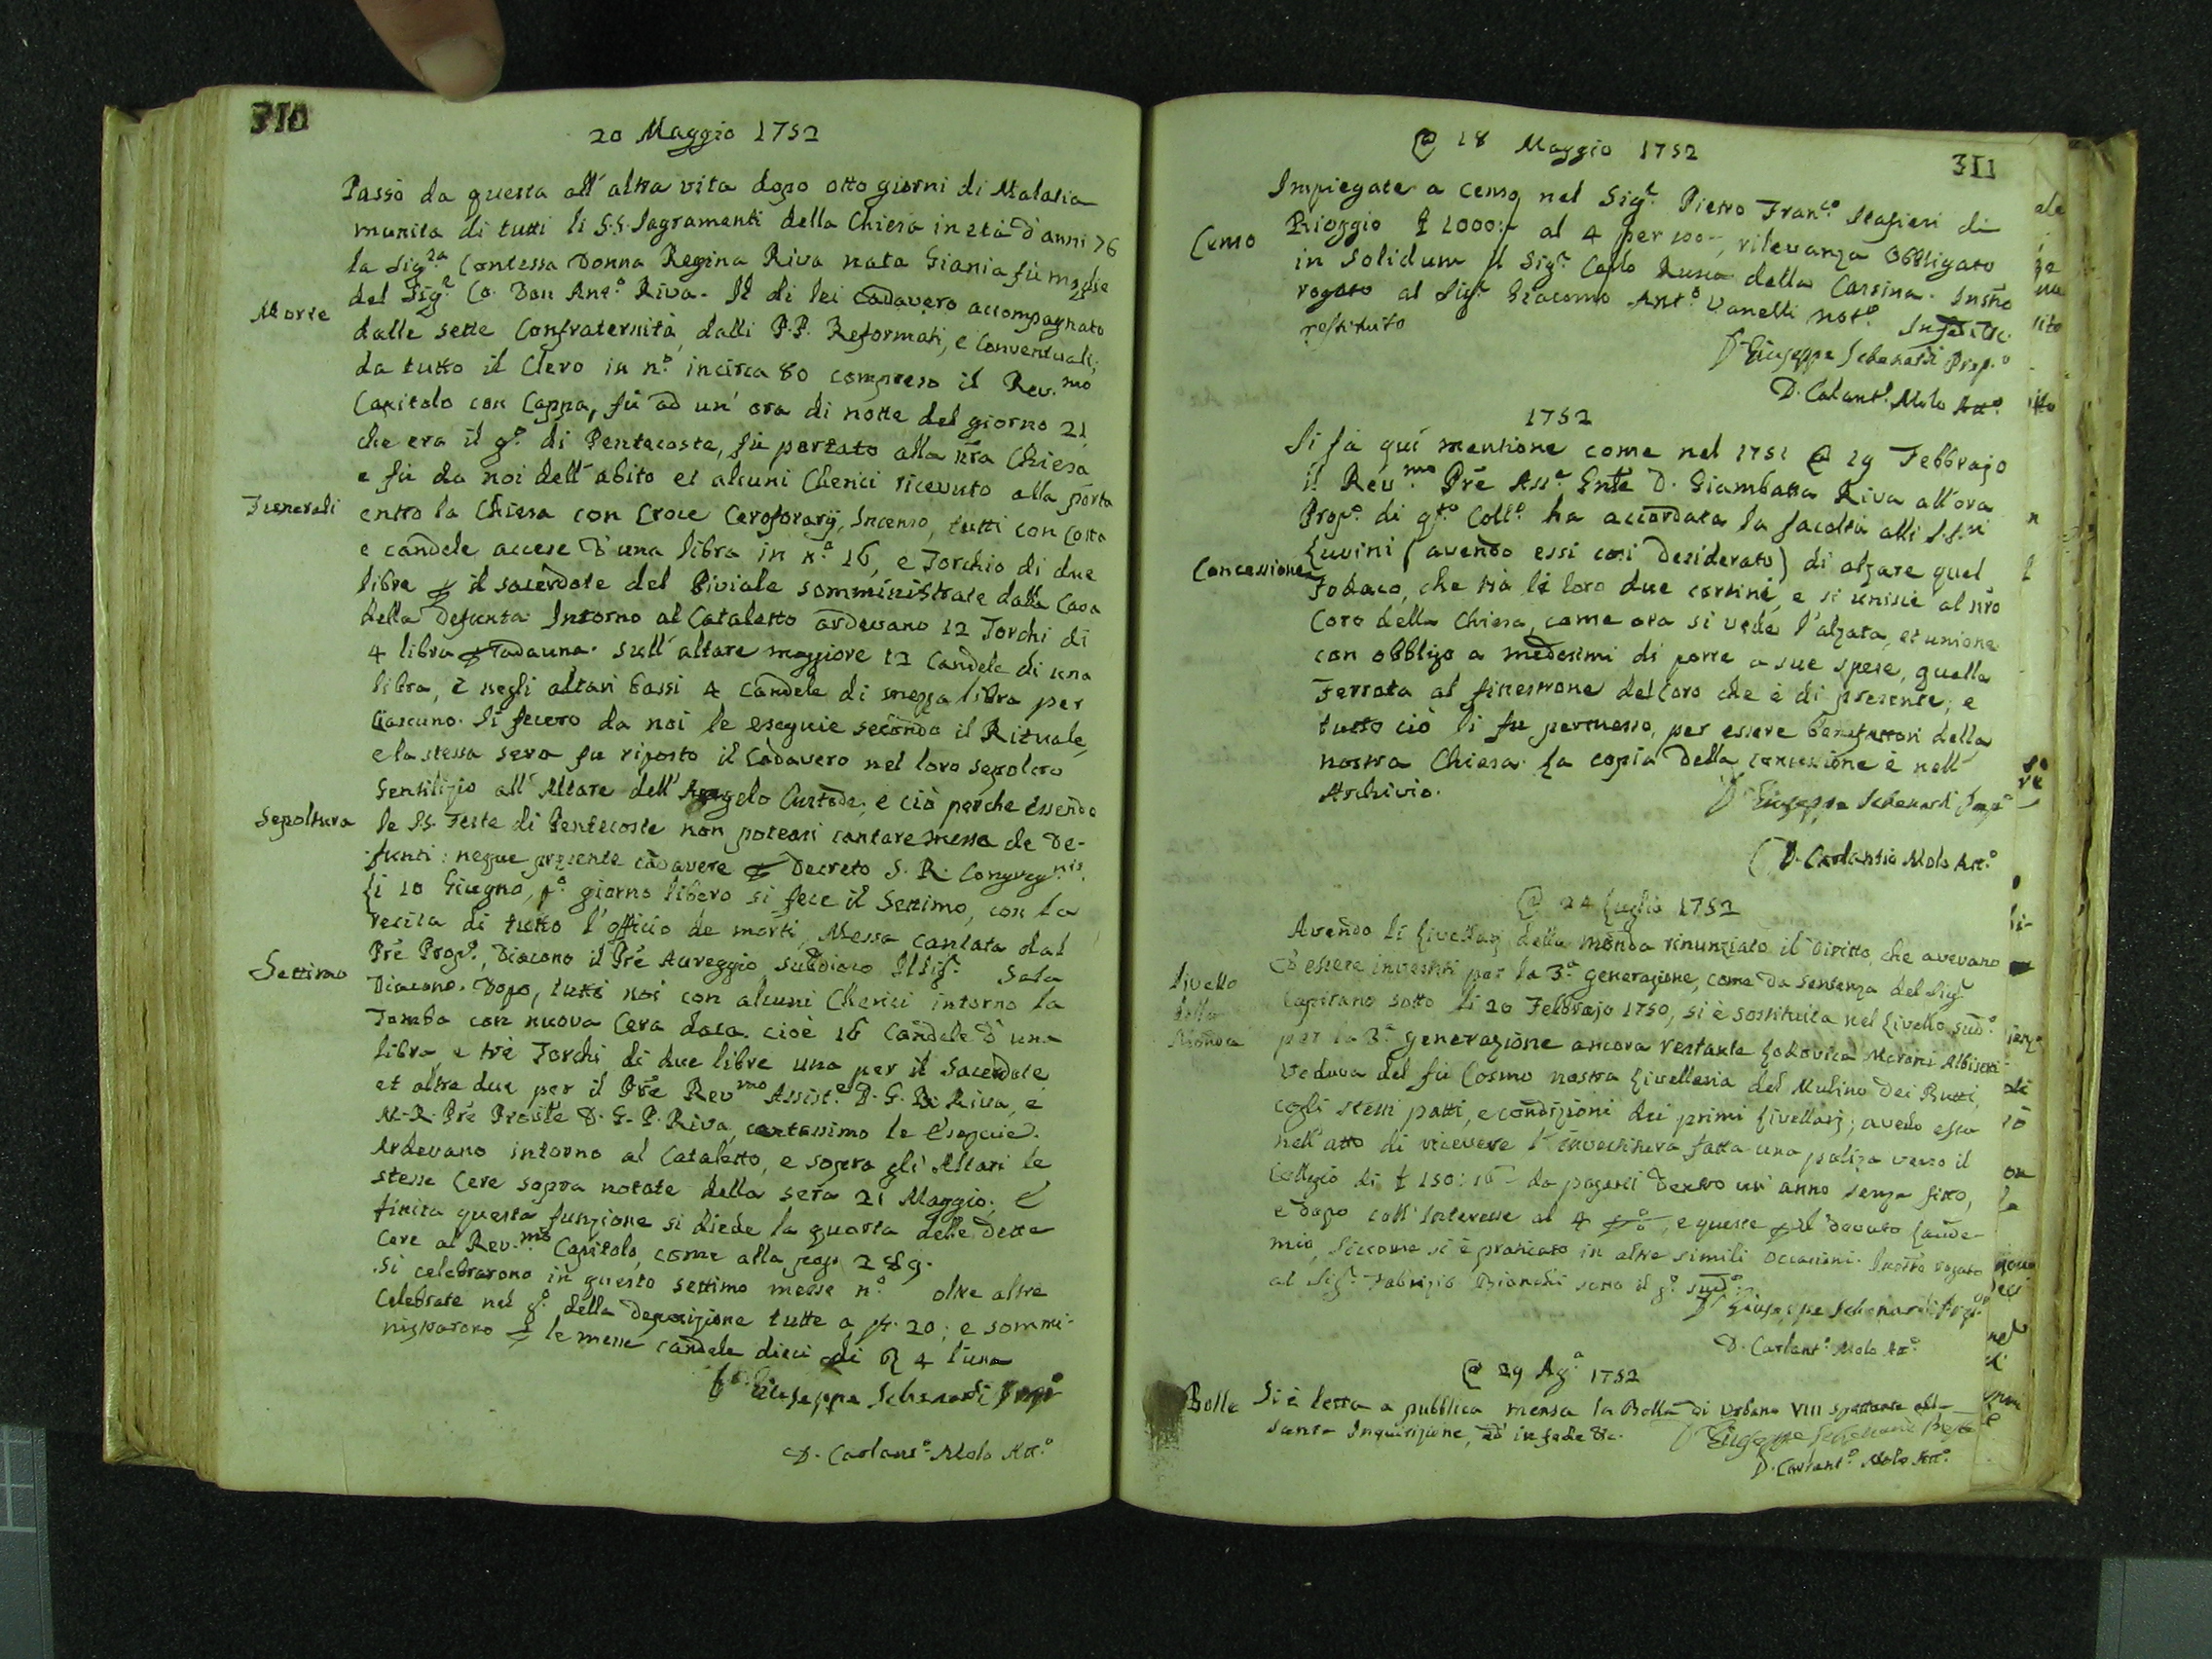 310
20 Maggio 1752
Passò da questa all'altra vita dopo otto giorni di Malatia
munita di tutti li S.S. Sagramenti della Chiesa in età d'anni 76
la Sig.ra Contessa Donna Regina Riva nata Giania fù moglie
del Sig.r Co. Don Ant.o Riva. Il di lei cadavero accompagnato
Morte
dalle sette Confraternità, dalli P.P. Reformati, e Conventuali,
da tutto il Clero in n.o incirca 80 compreso il Rev.mo
Capitolo con Cappa, fù ad un' ora di notte del giorno 21
che era il g.o di Pentecoste, fù portato alla nra Chiesa
e fù da noi dell'abito et alcuni Cherici ricevuto alla porta
Funerali
entro la Chiesa con Croce Ceroforarij, Incenso, tutti con Cotta
e candele accese d'una libra in n.o 16, e Torchio di due
libre p il sacerdote del Piviale somministrate dalla Casa
della Defunta. Intorno al Cataletto ardevano 12 Torchi di
4 libra p cadauna. sull'altare maggiore 12 Candele di una
libra, e negli altari bassi 4 candele di mezza libra per
ciascuno. Si fecero da noi le esequie secondo il Rituale,
e la stessa sera fu riposto il Cadavero nel loro sepolcro
Gentilizio all'Altare dell'Angelo Custode, e ciò perche essendo
Sepoltura
le SS. Feste di Pentecoste non poteasi cantare messa de De-
funti: neque presente cadavere p Decreto S. R. Congreg.nis
Li 10 Giugno, p.o giorno libero si fece il Settimo, con la
recita di tutto l'officio de morti, Messa cantata dal
Pre Prop.o, Diacono il Pre Aureggio, suddiaco Il Sig.r Sala
Settimo
Diacono. Dopo, tutti noi con alcuni Cherici intorno la
Tomba con nuova Cera data cioè 16 Candele d'una
libra e trè Torchi di due libre una per il Sacerdote
et altre due per il Pre Rev.mo Assist.e D. G. B. Riva, e
M. R. Pre Prouile D. G. P. Riva, cantassimo le Esequie.
Ardevano intorno al Cataletto, e sopra gli Altari le
stesse Cere sopra notate della sera 21 Maggio. E
finita questa funzione si diede la quarta delle dette
Cere al Rev.mo Capitolo, come alla pag. 289.
si celebrarono in questo settimo messe n.o oltre altre
Celebrate nel g.o della deposizione tutte a 20; e sommi-
nistrarono p le messe candele dieci di 4 l'una
Giuseppe Schenardi Prop.o
D. Carlant.o Molo Att.o
311
@ 18 Maggio 1752
Impiegate a censo nel Sig.r Pietro Fran.co Stafieri di
Censo
Bioggio £ 1000:- al 4 per 100-, rilevanza Obbligato
in solidum il Sig.r Carlo Rusca della Cassina. Instro
rogato al Sig.r Giacomo Ant.o Vanelli not.o In fede &c.
restituto
Giuseppe Schenardi Prop.o
D. Calant.o Molo Att.o
1752
Si fà quì menzione come nel 1751 @ 19 Febbrajo
il Rev.mo Pre Ass.e Gnle D. Giambatta Riva all'ora
Prop.o di q.to Coll.o ha accordata la facoltà alli S.S.ri
Luvini (avendo essi così desiderato) di alzare quel
Concessione
che stà le loro due cassine, e si unisce al nro
Coro della Chiesa, come ora si vede l'alzata, et unione
con obbligo a medesimi di porre a sue spese, quella
Ferrata al finestrone del Coro che è di presente; e
tutto ciò li fu permesso, per essere benefattori della
nostra Chiesa. La copia della concessione è nell'
Archivio.
Giuseppe Schenardi Prop.o
D. Carlantio Molo Att.o
@ 24 Luglio 1752
Avendo li Livellarj della Monda rinunziato il diritto, che avevano
d'essere investiti per la 3.a generazione, come da sentenza del Sig.r
Livello
della
Monda
Capitano sotto li 20 Febbrajo 1750, si è sostituita nel Livello sud.o
per la 3.a generazione ancora restante Lodovica Maroni Albisetti
Vedova del fù Cosmo nostra Livellaria del Mulino dei Butti
cogli stessi patti, e condizioni dei primi Livellarj; avendo essa
nell'atto di ricevere l'investitura fatta una poliza verso il
Collegio di £ 150:16- da pagarsi dentro un'anno senza fitto,
e dopo coll'Interesse al 4 p %, e queste p il dovuto Laude-
mio, siccome si è praticato in altre simili occasioni. Instro rogato
al Sig.r Fabrizio Bianchi sotto il g.o sud.o
Giuseppe Schenardi Prop.o
D. Carlant.o Molo Att.o
@ 29 Ag.o 1752
Bolle
Si è letta a pubblica mensa la Bolla di Urbano VIII spettante alla
Santa Inquisizione, ed in fede &c.
Giuseppe Schenardi Prop.o
D. Carlant.o Molo Att.o